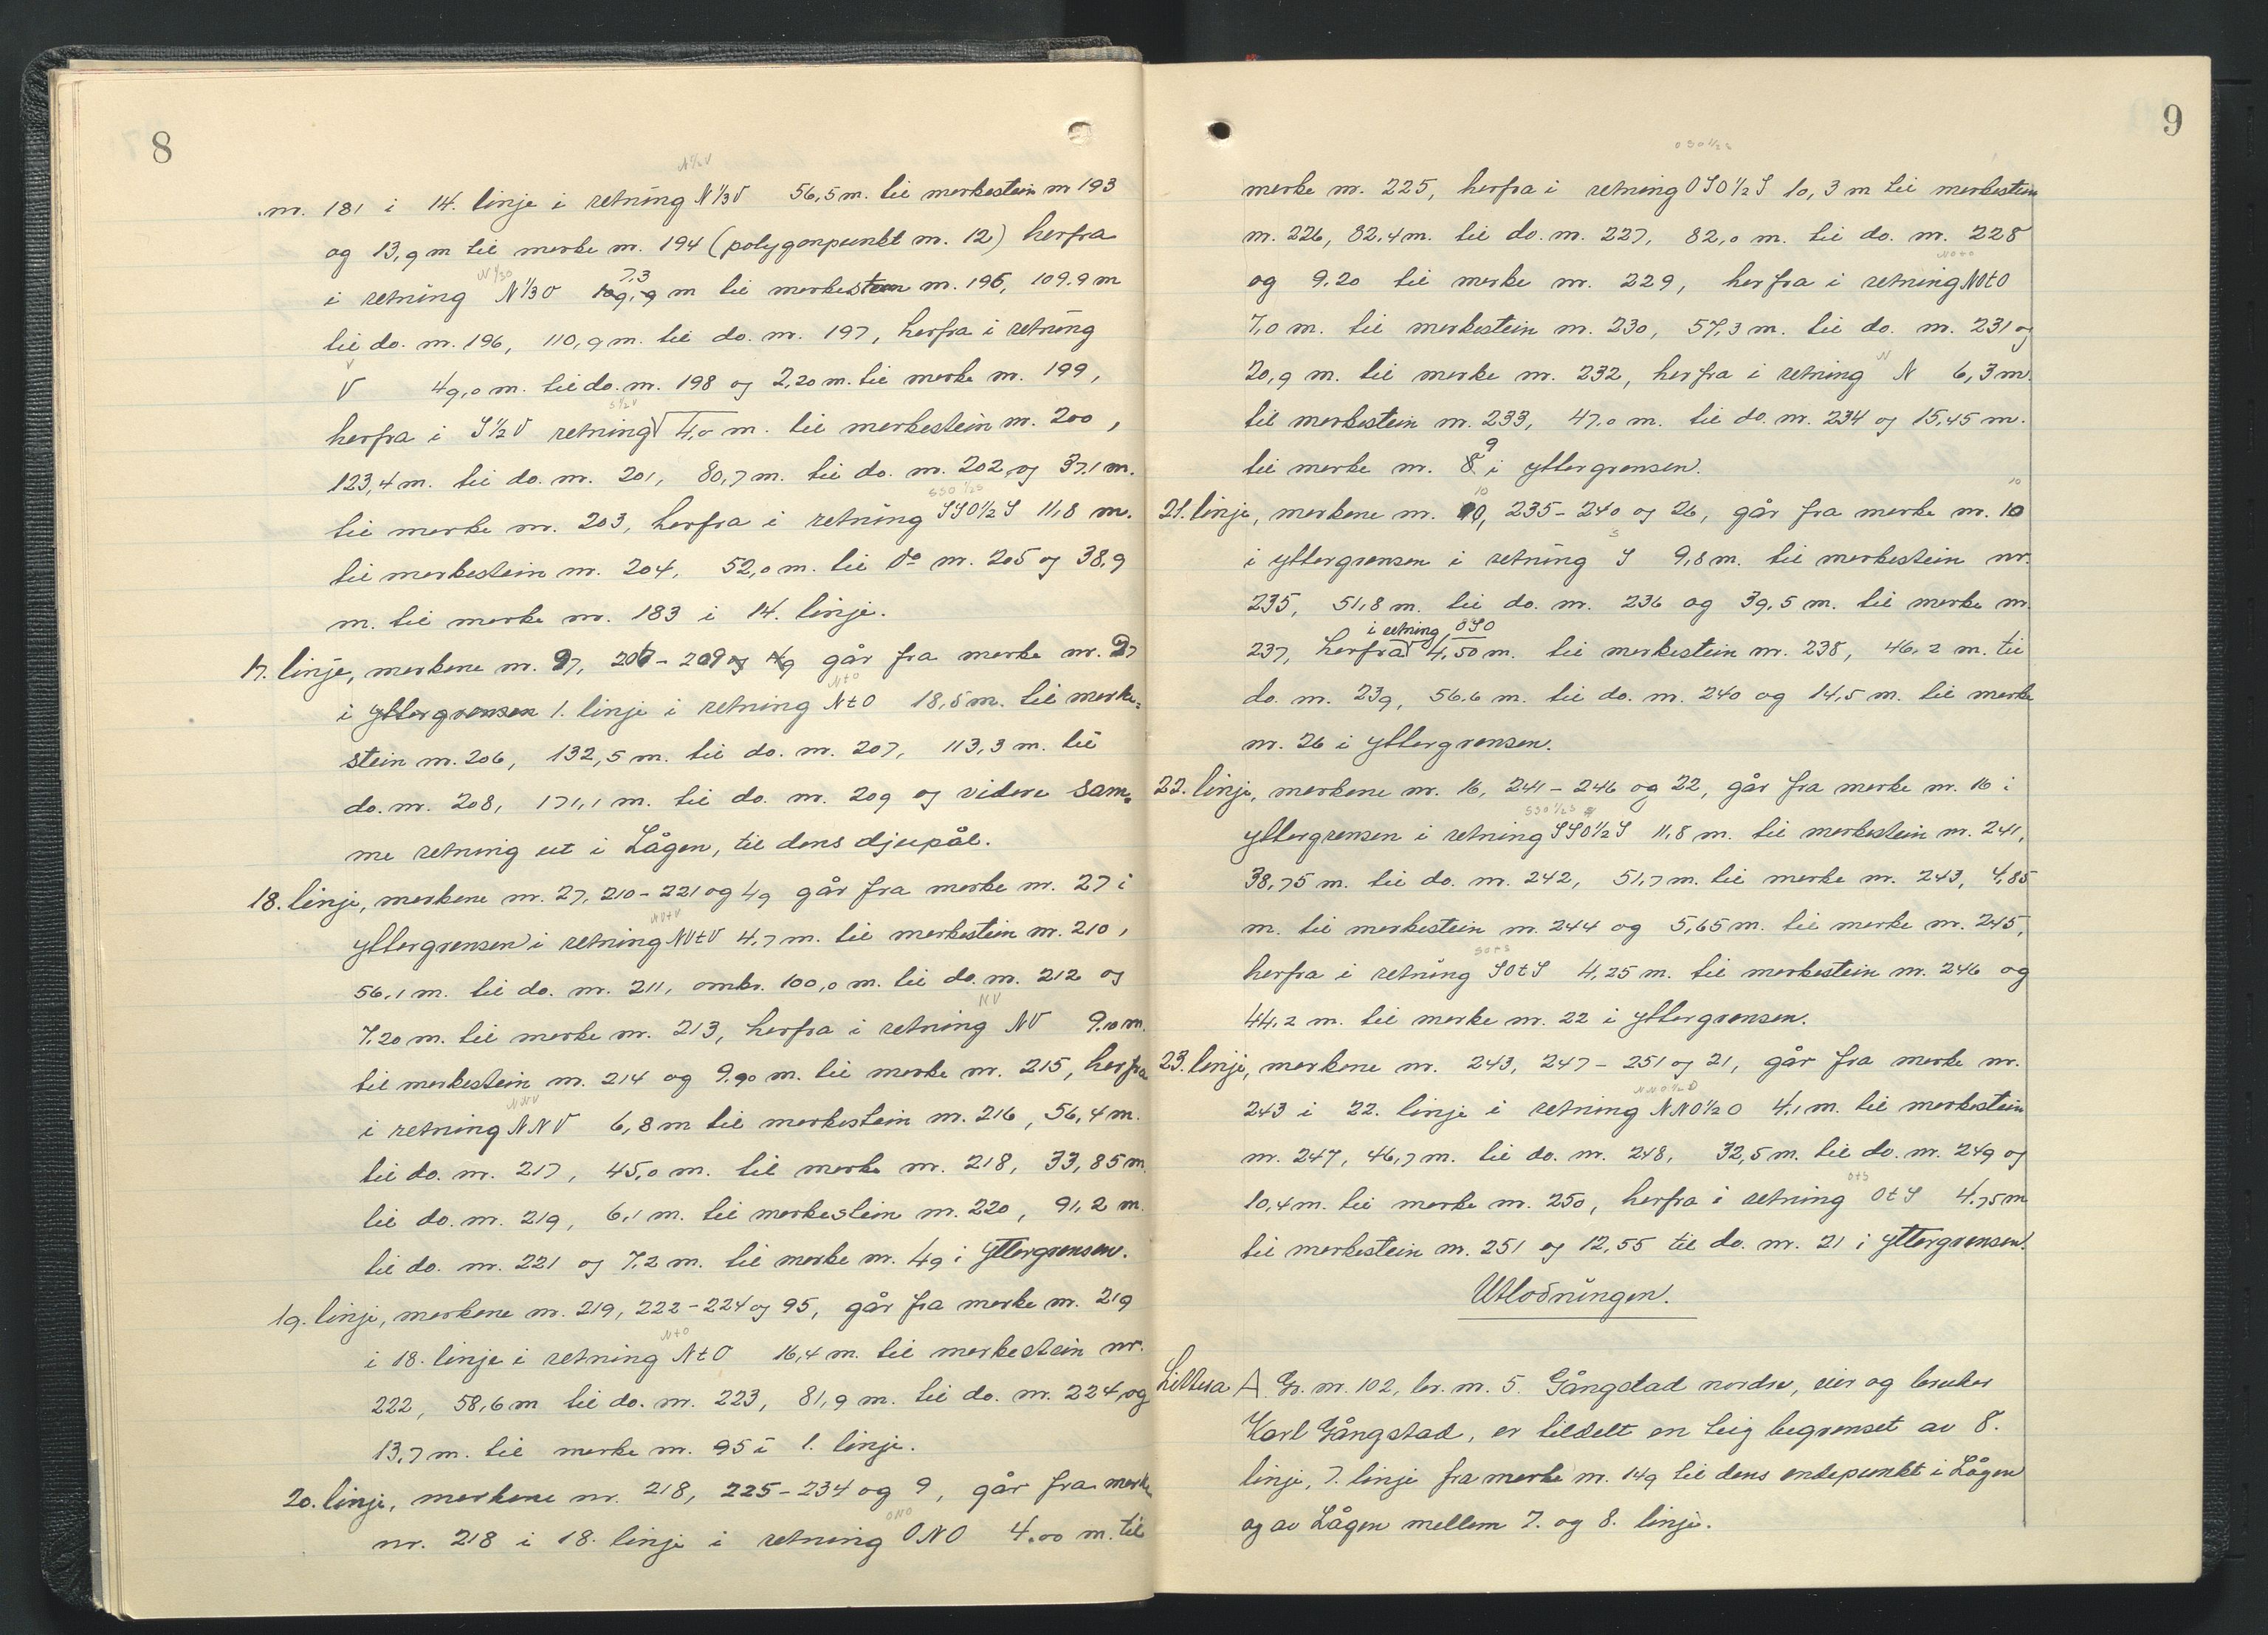 8
N½V
nr. 181 i 14. linje i retning N⅓V 56,5 m. til merkestein nr 193
og 13,9 m til merke nr. 194 (polygonpunkt nr. 12) herfra
N⅓O 7,3
i retning N⅓O 109,9 m til merkestein nr. 195, 109.9 m
til do. nr. 196, 110,9 m. til do. nr. 197, herfra i retning
V
V 49,0 m. til do. nr. 198 og 2,20 m. til merke nr. 199,
S½V
herfra i S½V retning 4,0 m. til merkestein nr. 200,
123,4 m. til do. nr. 201, 80,7 m. til do. nr. 202 og 37,1 m.
SSO½S
til merke nr. 203, herfra i retning SSO½S 11,8 m.
til merkestein nr. 204, 52,0 m. til do nr. 205 og 38,9
m. til merke nr. 183 i 14. linje.
17. linje, merkene nr. 97, 206-209 og går fra merke nr. 97
NtO
i yttergrensen 1. linje i retning NtO 18,5 m. til merke-
stein nr. 206, 132,5 m. til do. nr. 207, 113,3 m. til
do. nr. 208, 171,1 m. til do. nr. 209 og videre sam-
me retning ut i Lågen, til dens djupål.
18. linje, merkene nr. 27, 210-221 og 49 går fra merke nr. 27 i
NVtV
yttergrensen i retning NVtV 4,7 m. til merkestein nr. 210,
56,1 m. til do. nr. 211, omkr. 100,0 m. til do. nr. 212 og
NV
7,20 m. til merke nr. 213, herfra i retning NV 9.10 m.
til merkestein nr. 214 og 9.90 m. til merke nr. 215, herfra
NNV
i retning NNV 6,8 m til merkestein nr. 216, 56,4 m.
til do. nr. 217, 45,0 m. til merke nr. 218, 33,85 m.
til do. nr. 219, 6,1 m. til merkestein nr. 220, 91,2 m.
til do. nr. 221 og 7,2 m. til merke nr. 49 i yttergrensen.
19. linje, merkene nr. 219, 222-224 og 95, går fra merke nr. 219
NtO
i 18. linje i retning NtO 16,4 m. til merkestein nr.
222, 58,6 m til do. nr. 223, 81,9 m. til do. nr. 224, og
13,7 m. til merke nr. 95 i 1. linje.
20. linje, merkene nr. 218, 225-234 og 9, går fra merke
ONO
nr. 218 i 18. linje i retning ONO 4.00 m. til
9
OSO½S
merke nr. 225, herfra i retning OSO½S 10,3 m til merkestein
nr. 226, 82,4 m. til do. nr. 227, 82,0 m. til do. nr. 228
NOtO
og 9.20 til merke nr. 229, herfra i retning NOtO
7,0 m. til merkestein nr. 230, 57,3 m. til do. nr. 231 og
N
20,9 m. til merke nr. 232, herfra i retning N 6,3 m.
til merkestein nr. 233, 47,0 m. til do. nr. 234 og 15,45 m.
9
til merke nr. 8 i yttergrensen.
10 10
21. linje, merkene nr. 10, 235-240 og 26, går fra merke nr. 10
S
i yttergrensen i retning S 9,8 m. til merkestein nr.
235, 51,8 m. til do. nr. 236 og 39,5 m. til merke nr.
i retning OSO
237, herfra 4,50 m. til merkestein nr. 238, 46,2 m. til
do. nr. 239, 56.6 m. til do. nr. 240 og 14,5 m. til merke
nr. 26 i yttergrensen.
22. linje, merkene nr. 16, 241-246 og 22, går fra merke nr. 16 i
SSO½S
yttergrensen i retning SSO½S 11,8 m. til merkestein nr. 241,
38,75 m. til do. nr. 242, 51,7 m. til merke nr. 243, 4,85
m. til merkestein nr. 244 og 5,65 m. til merke nr. 245,
SOtS
herfra i retning SOtS 4,25 m. til merkestein nr. 246 og
44,2 m. til merke nr. 22 i yttergrensen.
23. linje, merkene nr. 243, 247-251 og 21, går fra merke nr.
NNO½O
243 i 22. linje i retning NNO½O 4,1 m. til merkestein
nr. 247, 46,7 m. til do. nr. 248, 32,5 m. til do. nr. 249 og
OtS
10,4 m. til merke nr. 250, herfra i retning OtS 4,75 m
til merkestein nr. 251 og 12,55 til do. nr. 21 i yttergrensen.
Utlodningen.
Littera A Gr. nr. 102, br. nr. 5. Gångstad nordre, eier og bruker
Karl Gångstad, er tildelt en teig begrenset av 8.
linje, 7. linje fra merke nr. 149 til dens endepunkt i Lågen
og av Lågen mellem 7. og 8. linje.